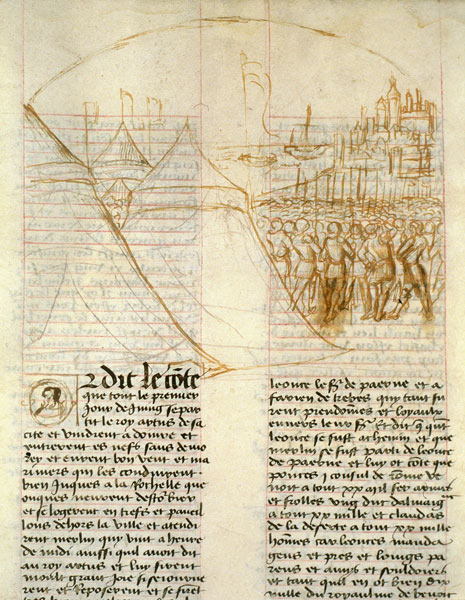 dit le cõte
que tout le premier
Jour de Jung se par
tit le roy artus de sa
cite et vindrent a douvre et
entrerent es nefs sans demo
rer et eurent bon vent et ma
riniers qui les conduirent
bien Jusques a la Rochelle que
onques neurent destorbier
et se logerent en tiefs et paueil
lons dehors la ville et atendi
rent merlin qui vint a heure
de midi aussi quil auoit dit
au roy artus et luy firent
moult grant Joie si seiourne
rent et Reposerent et se firet
leonce le fz de paerne et a
farien de trebes qui tant fu
rent preudomes et loyaulx
enuers Et dit quant
leonce se fust achemin et que
merlin se fust parti de leonce
de paerne et luy ot cõte que
ponces J consul de Rome ve
noit a tout xx mil fer armes
et frolles ung duc dalmaig
a tout xx mille et claudas
de la deserte a tout xx mille
hõmes car leonces manda
gens et pres et loings pa
rens et amis et souldoiers
et tant quil en ot bien dix
mille du royaulme de benoit